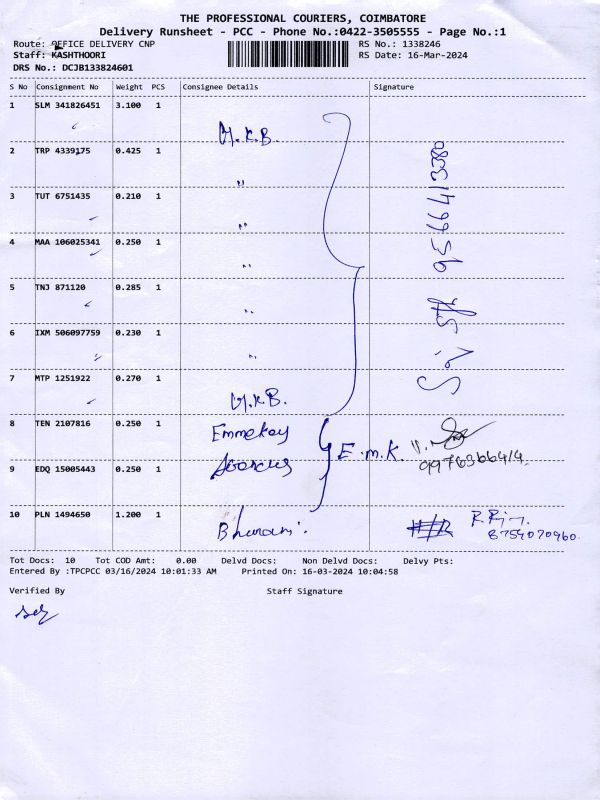 THE PROFESSIONAL COURIERS, COIMBATORE
Delivery Runsheet - PCC - Phone No.:0422-3505555 - Page No.:1
Route: OFFICE DELIVERY CNP
RS No.: 1338246
Staff: KASHTHOORI
RS Date: 16-Mar-2024
DRS No.: DCJB133824601
S No Consignment No Weight PCS Consignee Details Signature
1 SLM 341826451 3.100 1 M.K.B.
2 TRP 4339175 0.425 1 "
3 TUT 6751435 0.210 1 "
4 MAA 106025341 0.250 1 "
5 TNJ 871120 0.285 1 "
6 IXM 506097759 0.230 1 "
7 MTP 1251922 0.270 1 M.K.B.
9566413380
8 TEN 2107816 0.250 1 Emmekay E.m.K
9976366414
9 EDQ 15005443 0.250 1
10 PLN 1494650 1.200 1
8754070960
Tot Docs: 10 Tot COD Amt: 0.00 Delvd Docs: Non Delvd Docs: Delvy Pts:
Entered By :TPCPCC 03/16/2024 10:01:33 AM Printed On: 16-03-2024 10:04:58
Verified By Staff Signature